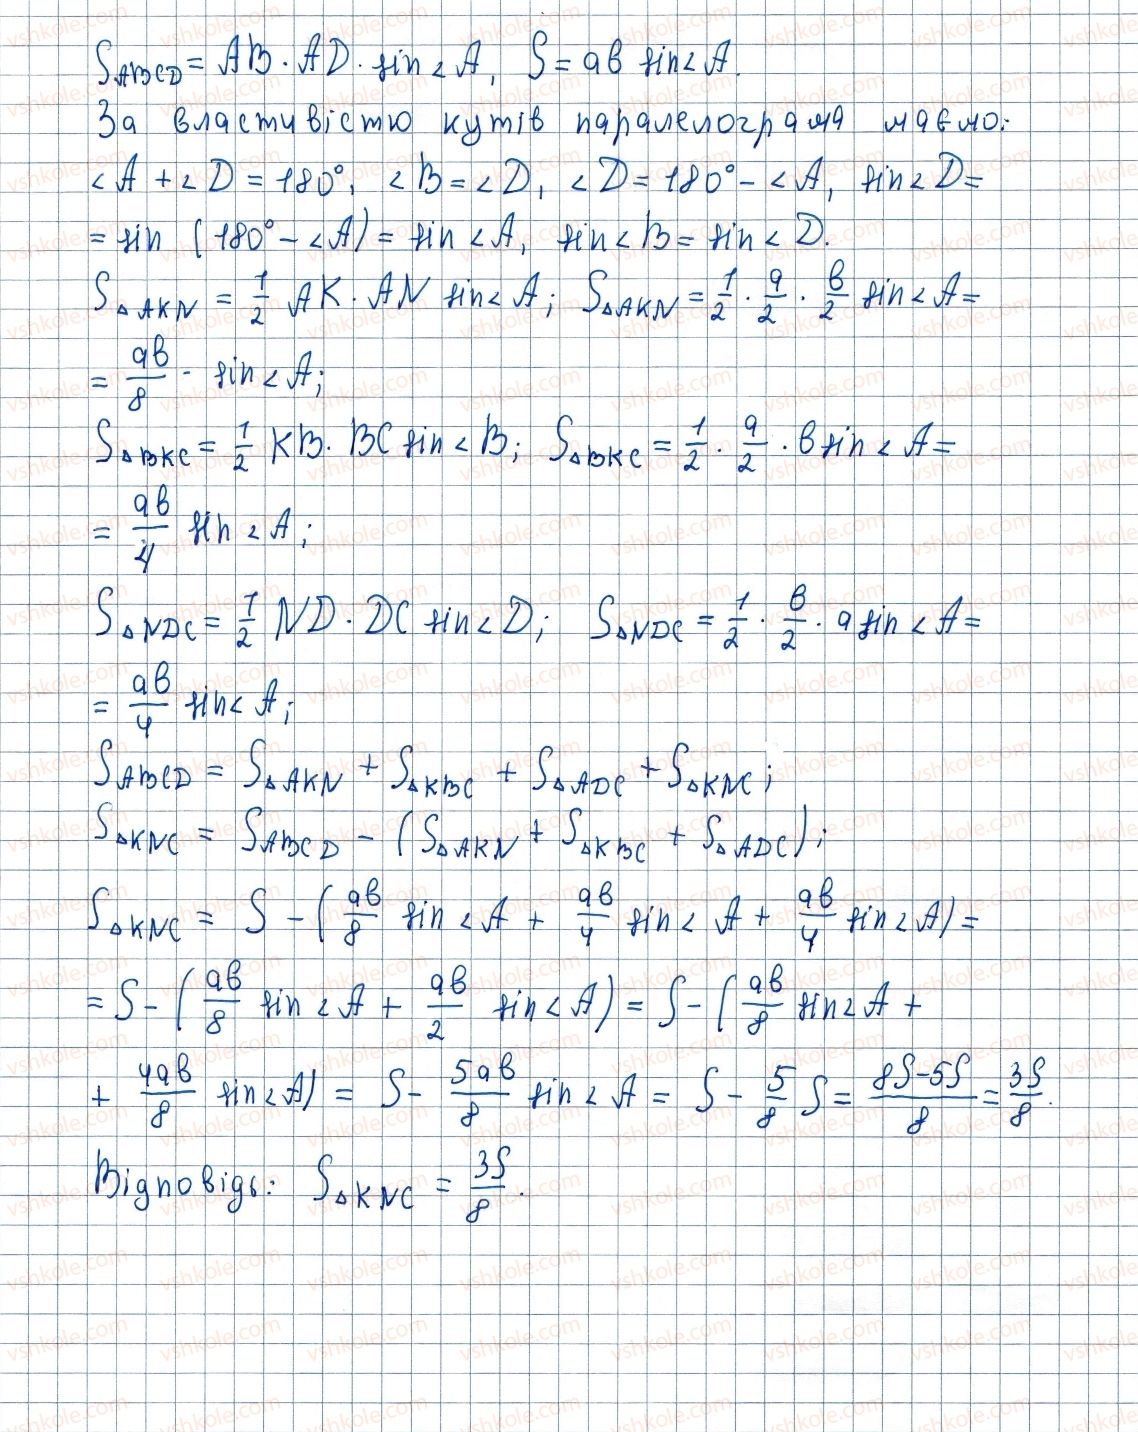 S_ABCD = AB · AD · sin∠A, S = ab sin∠A.
За властивістю кутів паралелограма маємо:
∠A + ∠D = 180°, ∠B = ∠D, ∠D = 180° − ∠A, sin∠D =
= sin (180° − ∠A) = sin∠A, sin∠B = sin∠D.
S_△AKN = 1/2 AK · AN sin∠A; S_△AKN = 1/2 · a/2 · b/2 sin∠A =
= ab/8 · sin∠A;
S_△BKC = 1/2 KB · BC sin∠B; S_△BKC = 1/2 · a/2 · b sin∠A =
= ab/4 sin∠A;
S_△NDC = 1/2 ND · DC sin∠D; S_△NDC = 1/2 · b/2 · a sin∠A =
= ab/4 sin∠A;
S_ABCD = S_△AKN + S_△KBC + S_△ADC + S_△KNC;
S_△KNC = S_ABCD − (S_△AKN + S_△KBC + S_△ADC);
S_△KNC = S − (ab/8 sin∠A + ab/4 sin∠A + ab/4 sin∠A) =
= S − (ab/8 sin∠A + ab/2 sin∠A) = S − (ab/8 sin∠A +
+ 4ab/8 sin∠A) = S − 5ab/8 sin∠A = S − 5/8 S = (8S−5S)/8 = 3S/8.
Відповідь: S_△KNC = 3S/8.